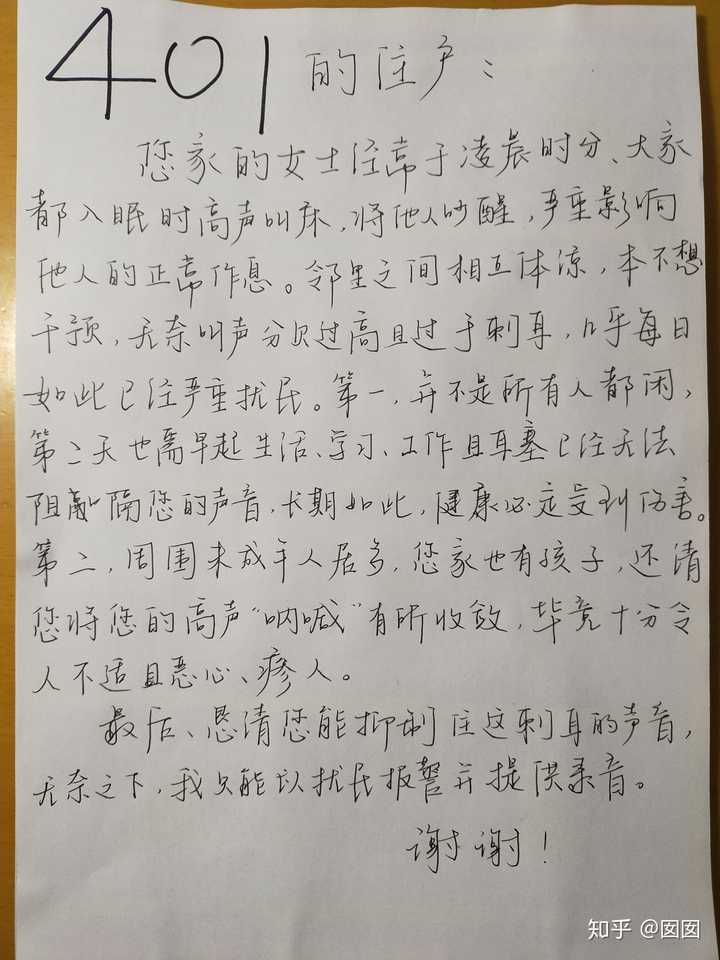 401的住户:
您家的女士经常于凌晨时分、大家
都入眠时高声叫床,将他人吵醒,严重影响
他人的正常作息。邻里之间相互体凉,本不想
干预,无奈叫声分贝过高且过于刺耳,几乎每日
如此已经严重扰民。第一,并不是所有人都闲,
第二天也需早起生活、学习、工作且耳塞已经无法
阻隔您的声音,长期如此,健康必定受到伤害。
第二,周围未成年人居多,您家也有孩子,还请
您将您的高声“呐喊”有所收敛,毕竟十分令
人不适且恶心、瘆人。
最后、恳请您能抑制住这刺耳的声音,
无奈之下,我只能以扰民报警并提供录音。
谢谢!
知乎 @囡囡